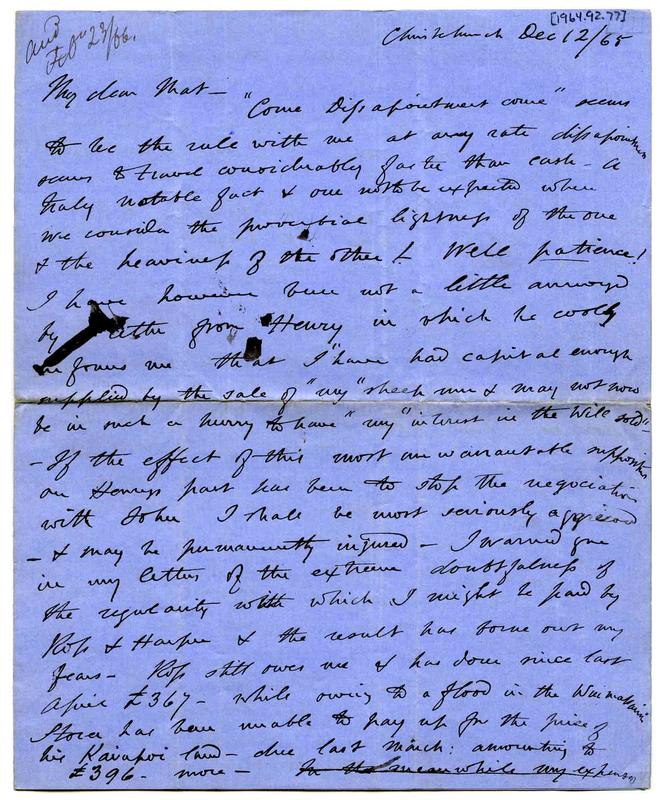 [1964.92.77]
and
Feb 23/66.
Christchurch Dec 12/65
My dear Mat — "Come Dissapointment come" seems
to be the rule with me at any rate dissapointment
seems to travel considerably faster than cash — a
truly notable fact & one not to be expected when
we consider the proverbial lightness of the one
& the heaviness of the other! Well patience!
I have however been not a little annoyed
by letter from Henry in which he coolly
informs me that I "have had capital enough
supplied by the sale of "my" sheep run & may not now
be in such a hurry to have "my" interest in the Will sold"
— If the effect of this most unwarrantable supposition
on Henrys part has been to stop the negociation
with John I shall be most seriously aggrieved
— & may be permanently injured — I warned you
in my letters of the extreme doubtfulness of
the regularity with which I might be paid by
Ross & Harper & the result has borne out my
fears — Ross still owes me & has done since last
April £367 — while owing to a flood in the Waimakariri
has been unable to pay up for the price of
his Kaiapoi land — due last March: amounting to
£396 — more — In the meanwhile my expenses